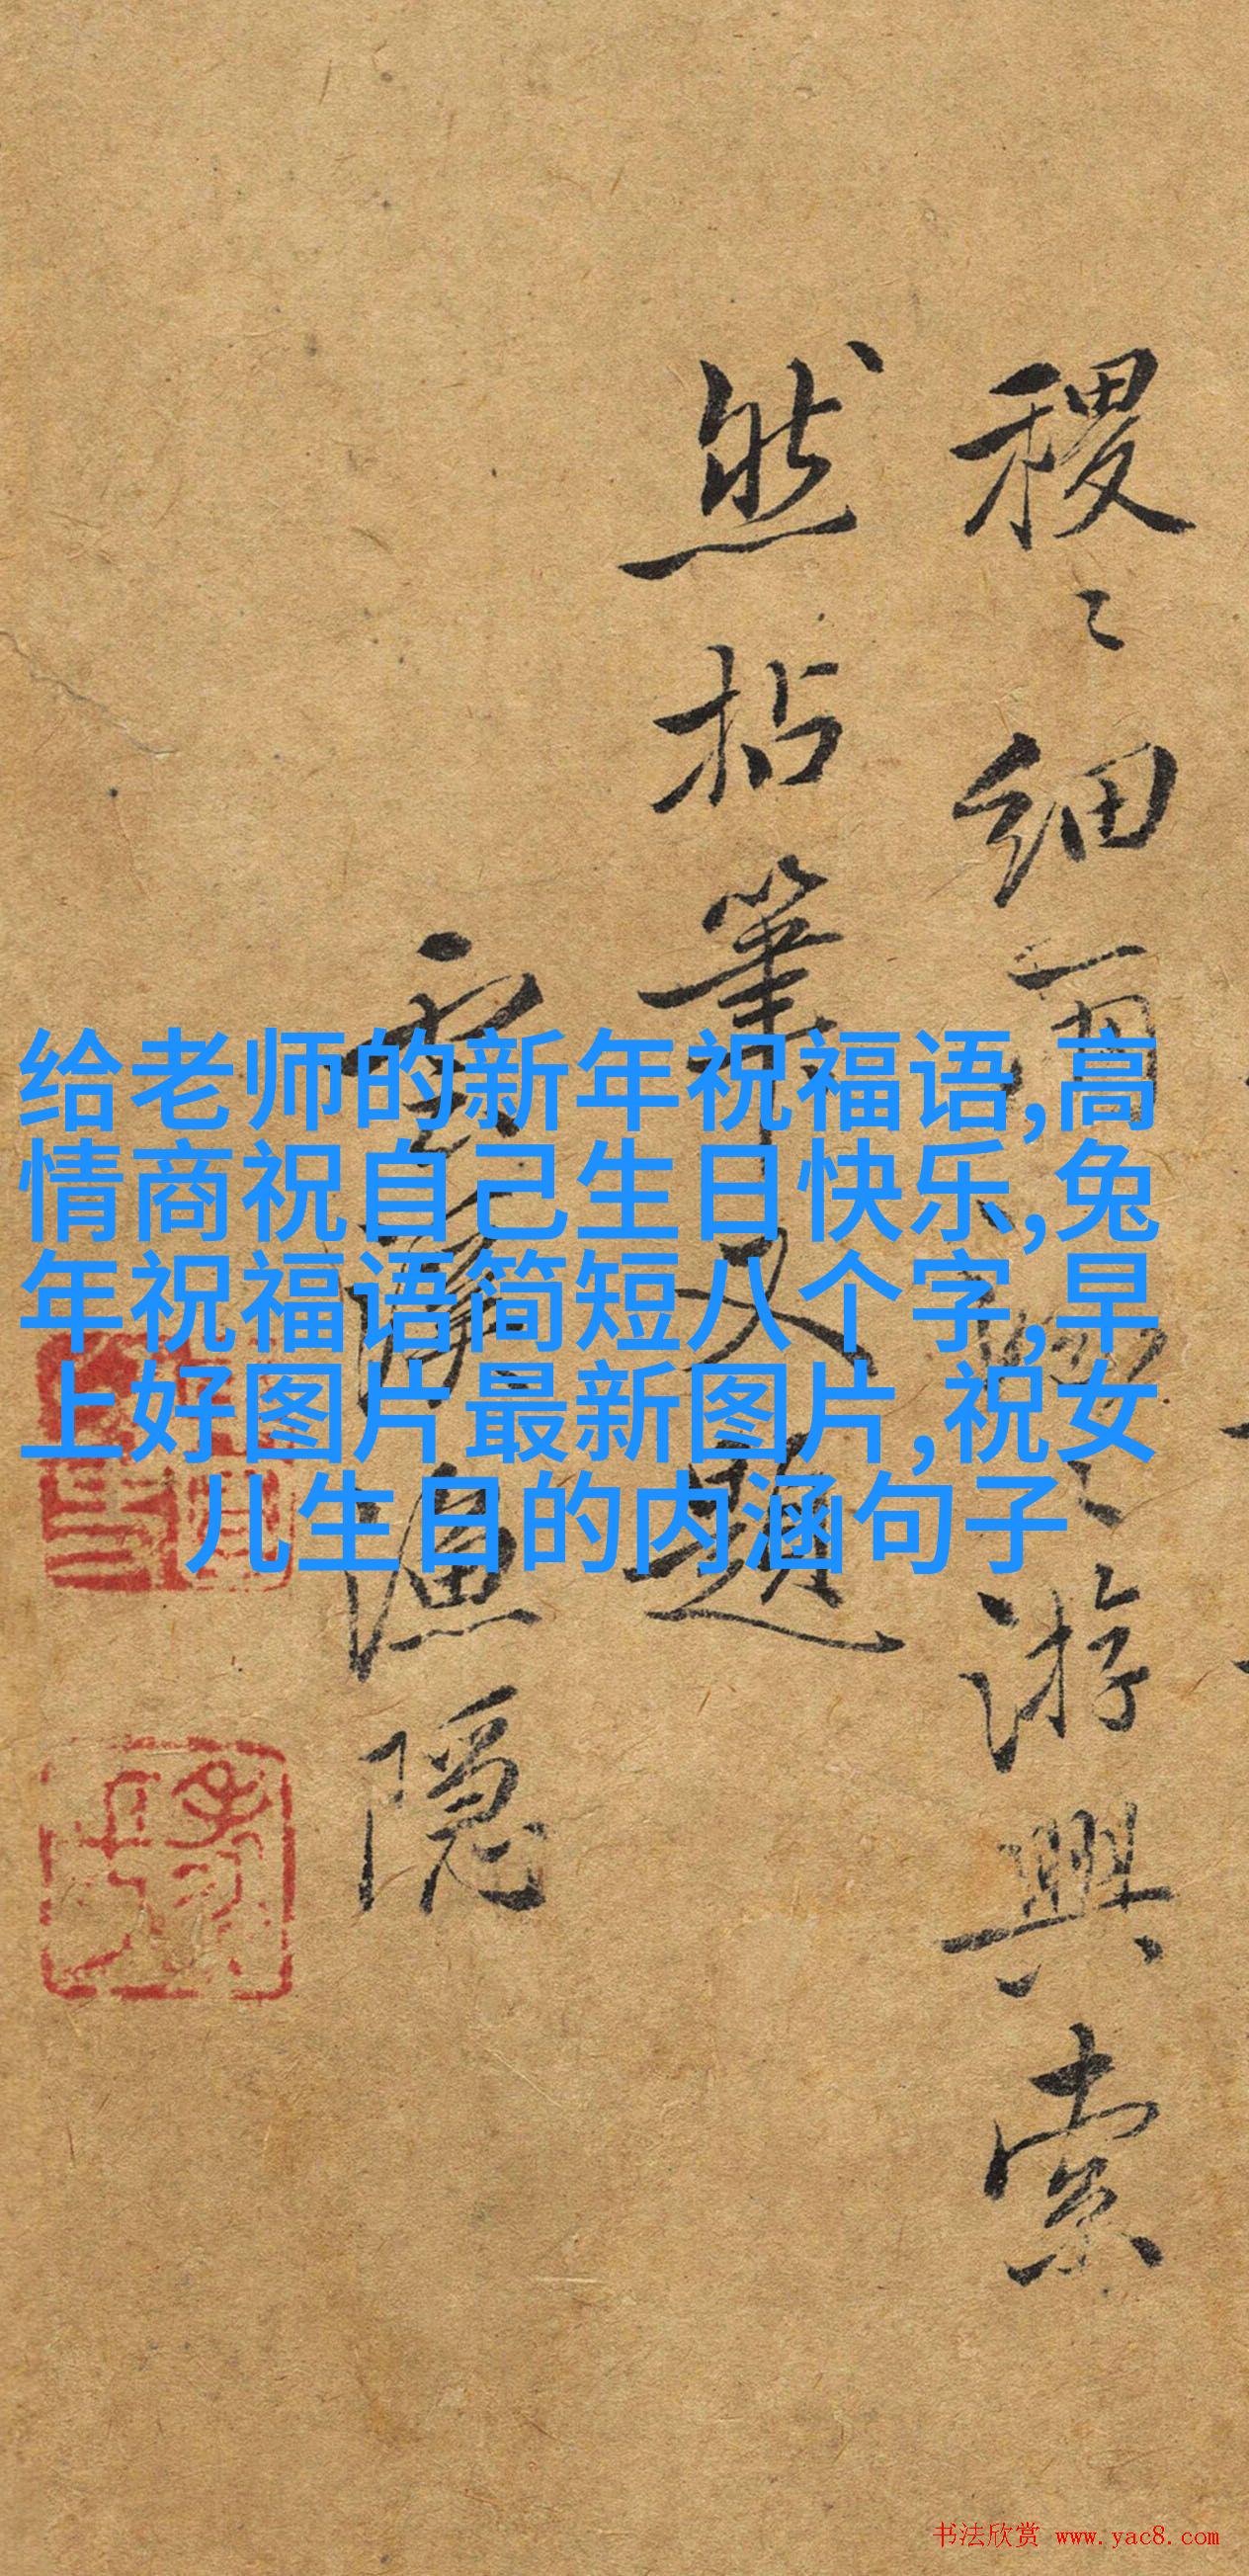 稷〻细雨
游興索
然拈筆又題
雲
渔隠
给老师的新年祝福语,高
情商祝自己生日快乐,兔
年祝福语简短八个字,早
上好图片最新图片,祝女
儿生日的内涵句子
书法欣赏 www.yac8.com